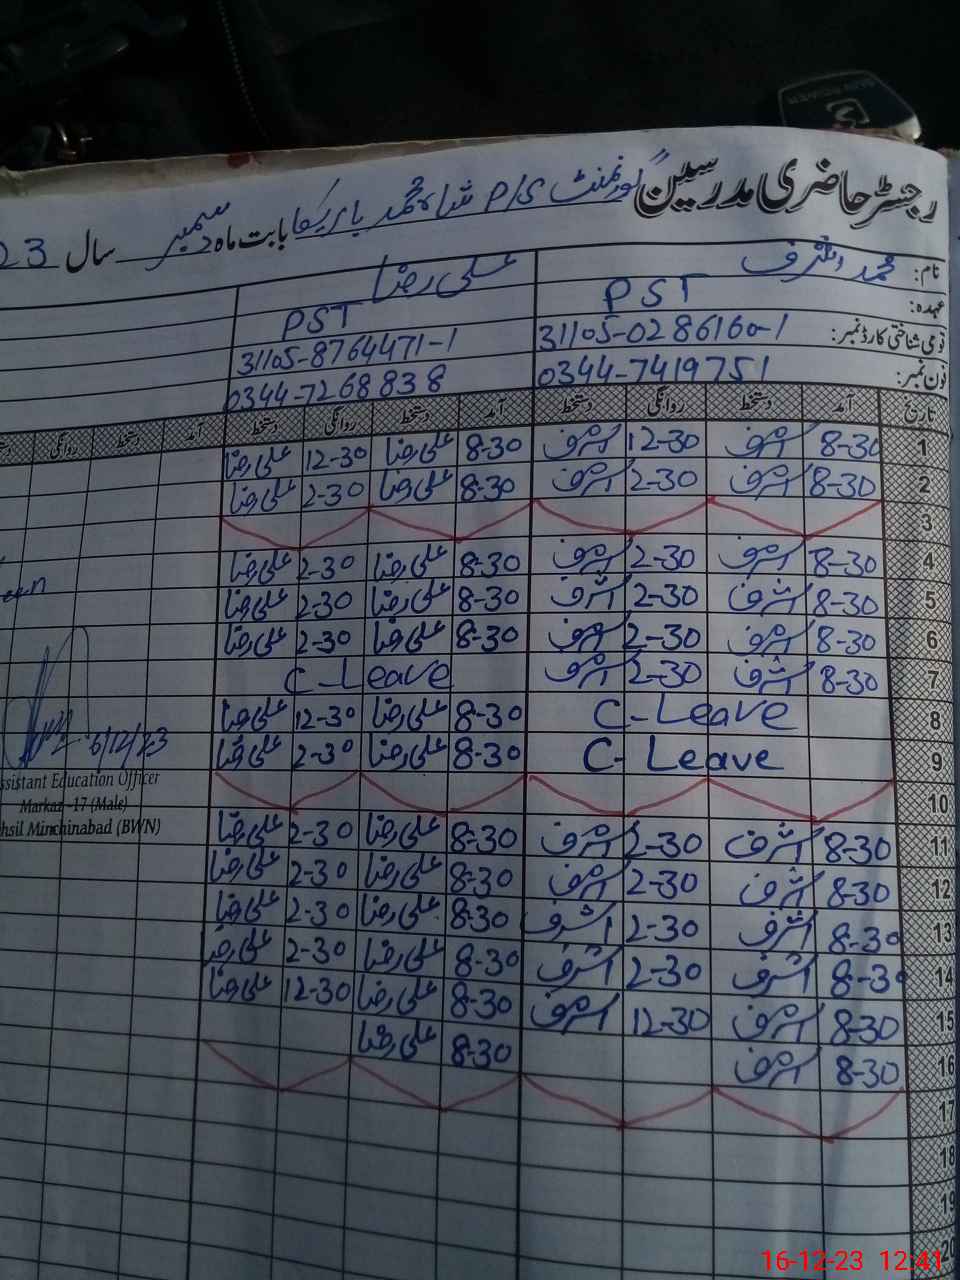 رجسٹر حاضری مدرسین گورنمنٹ P/S شاہ محمد بابت ماہ دسمبر سال 23
نام: محمد اشرف علی رضا
عہدہ: PST PST
قومی شناختی کارڈ نمبر: 31105-0286160-1 31105-8764471-1
فون نمبر: 0344-7419751 0344-7268838
تاریخ آمد دستخط روانگی دستخط آمد دستخط روانگی دستخط آمد دستخط روانگی
1 8-30 اشرف 12-30 اشرف 8-30 علی رضا 12-30 علی رضا
2 8-30 اشرف 2-30 اشرف 8-30 علی رضا 2-30 علی رضا
3
4 8-30 اشرف 2-30 اشرف 8-30 علی رضا 2-30 علی رضا
5 8-30 اشرف 2-30 اشرف 8-30 علی رضا 2-30 علی رضا
6 8-30 اشرف 2-30 اشرف 8-30 علی رضا 2-30 علی رضا
7 8-30 اشرف 2-30 اشرف C-Leave
8 C-Leave 8-30 علی رضا 12-30 علی رضا
9 C-Leave 8-30 علی رضا 2-30 علی رضا
10
11 8-30 اشرف 2-30 اشرف 8-30 علی رضا 2-30 علی رضا
12 8-30 اشرف 2-30 اشرف 8-30 علی رضا 2-30 علی رضا
13 8-30 اشرف 2-30 اشرف 8-30 علی رضا 2-30 علی رضا
14 8-30 اشرف 2-30 اشرف 8-30 علی رضا 2-30 علی رضا
15 8-30 اشرف 12-30 اشرف 8-30 علی رضا 12-30 علی رضا
16 8-30 اشرف 8-30 علی رضا
17
18
19
20
6/12/23
ssistant Education Officer
Markaz-17 (Male)
hsil Minchinabad (BWN)
16-12-23 12:41